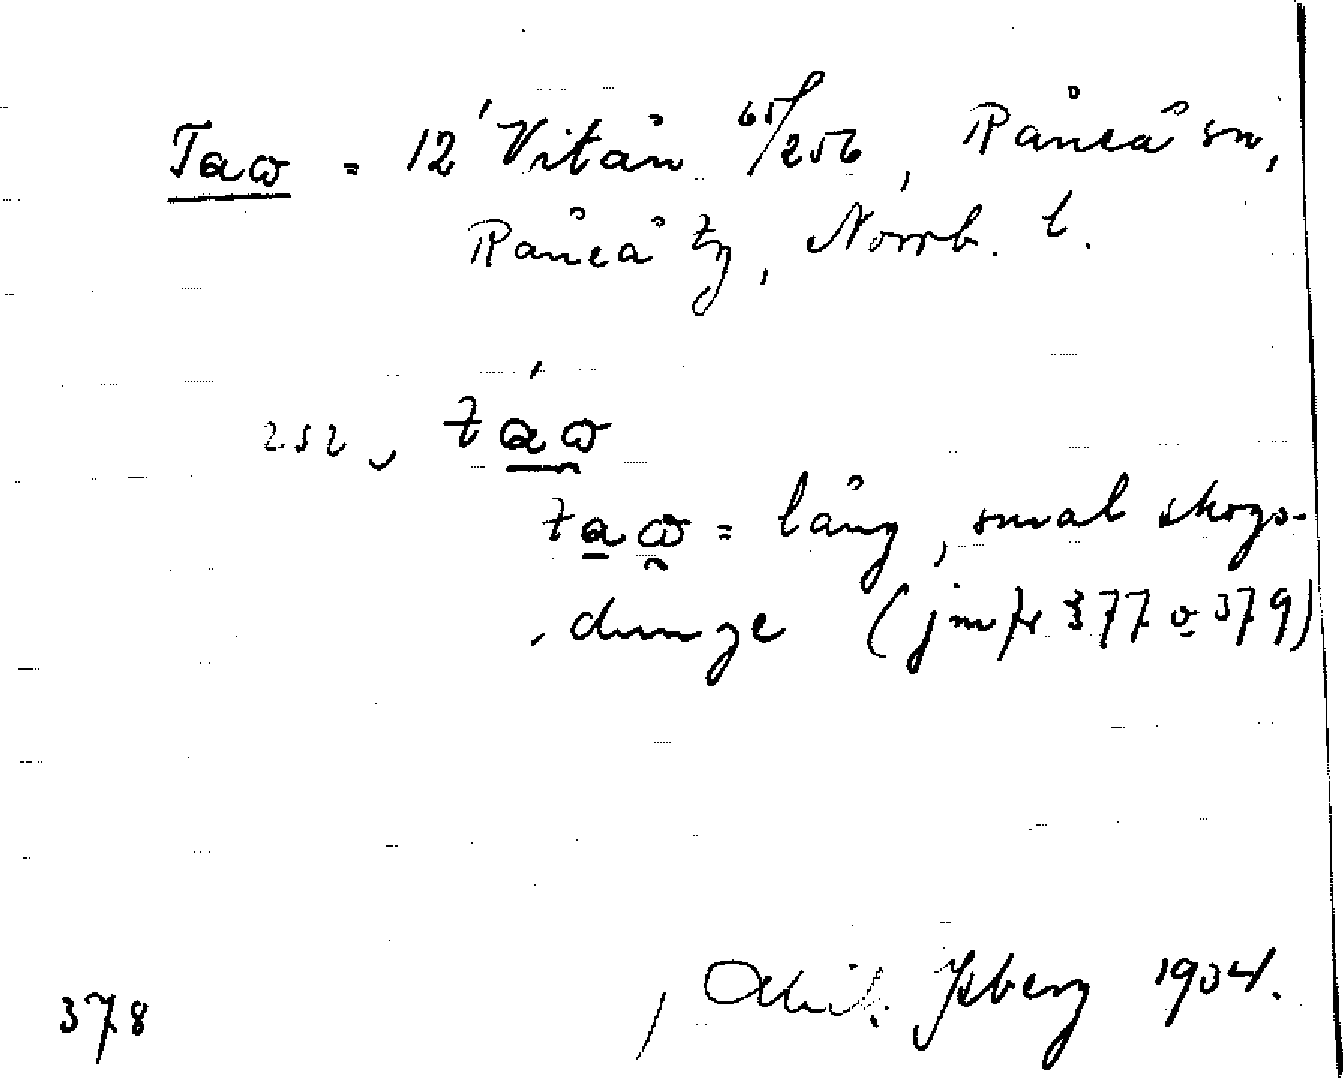 Taω = 12 Vitån 65/256, Råneå sn,
Råneå tg, Norrb. l.
252, taω
taω = lång, smal skogs-
dunge (jmfr 377 o 379)
378 Isberg 1904.